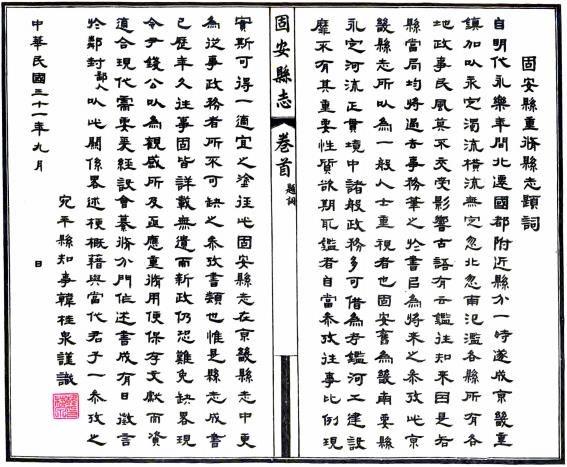 固安縣重修縣志題詞
自明代永樂年間北遷國都附近縣分一時遂成京畿重
鎮加以永定濁流橫流無定忽北忽南氾濫各縣所有各
地政事民風莫不交受影響古語有云鑑往知來因是若
縣當局均將過去事務筆之於書已為將來之參攷此京
畿縣志所以為一般人士重視者也固安舊為畿南要縣
永定河流正貫境中諸般政務多可借為考鑑河工建設
靡不有其重要性質欲期取鑑者自當參攷往事比例現
固安縣志 卷首 題詞
實斯可得一適宜之塗徑此固安縣志在京畿縣志中更
為從事政務者所不可缺之參攷書類也惟是縣志成書
已歷年久往事固皆詳載無遺而新政仍恐難免缺畧現
令尹錢公以為觀感所及亟應重修用便保存文獻而資
適合現代需要爰經設會纂修分門作述書成有日徵言
於鄰封鄙人以此關係畧述梗概藉與當代君子一參攷之
宛平縣知事韓桂泉謹識
中華民國三十一年九月 日